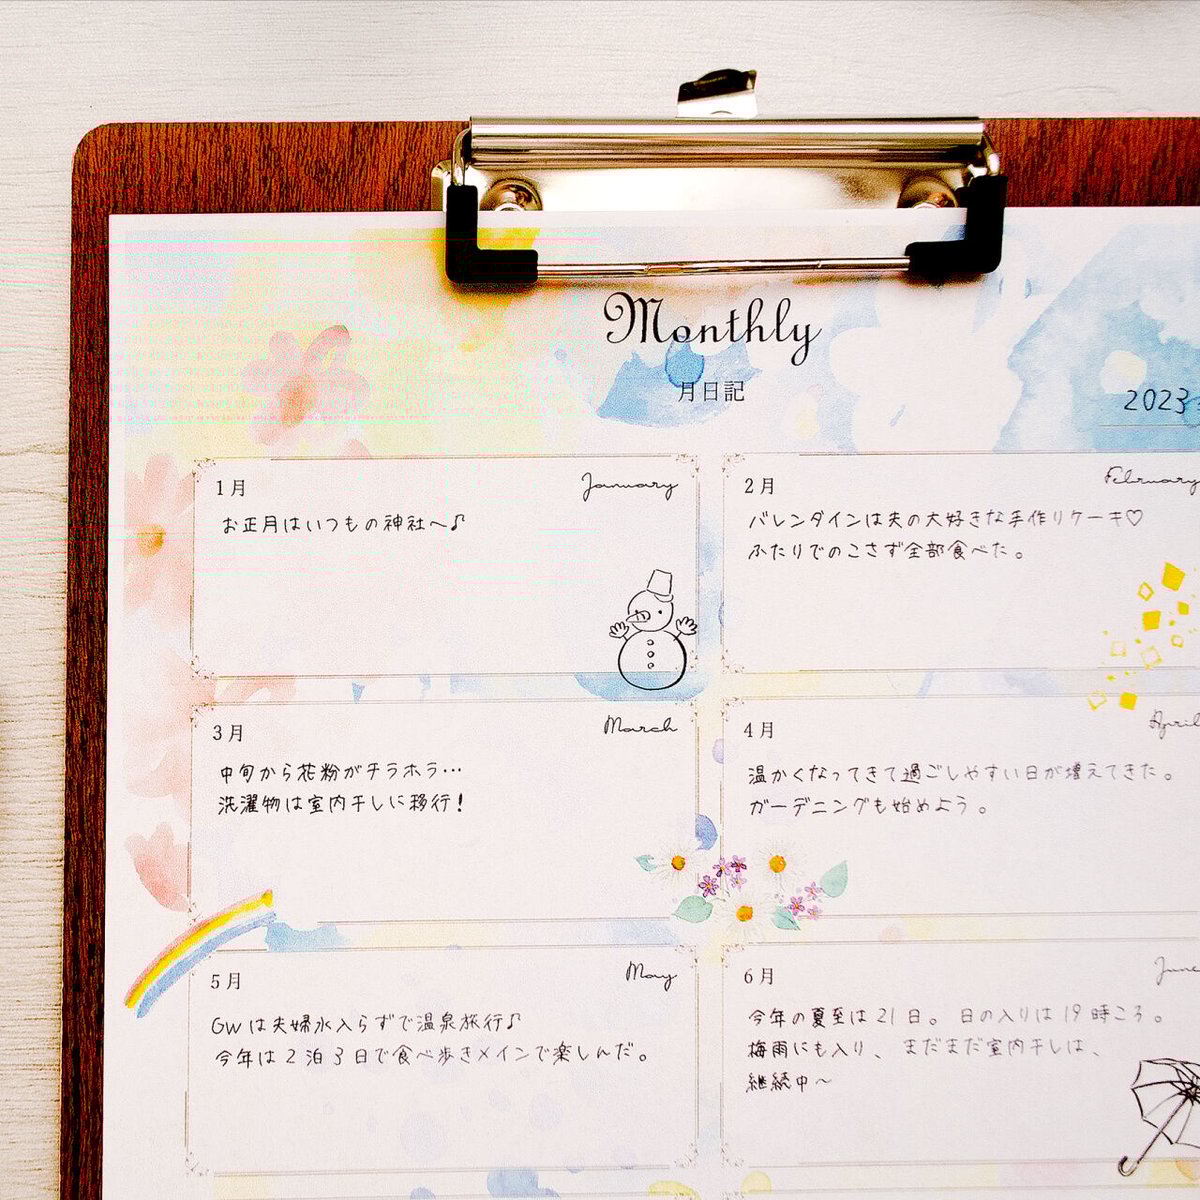 Monthly
月日記
2023
1月 January
お正月はいつもの神社へ♪
2月 February
バレンタインは夫の大好きな手作りケーキ♡
ふたりでのこさず全部食べた。
3月 March
中旬から花粉がチラホラ…
洗濯物は室内干しに移行!
4月 April
温かくなってきて過ごしやすい日が増えてきた。
ガーデニングも始めよう。
5月 May
GWは夫婦水入らずで温泉旅行♪
今年は2泊3日で食べ歩きメインで楽しんだ。
6月 June
今年の夏至は21日。日の入りは19時ころ。
梅雨にも入り、まだまだ室内干しは、
継続中〜